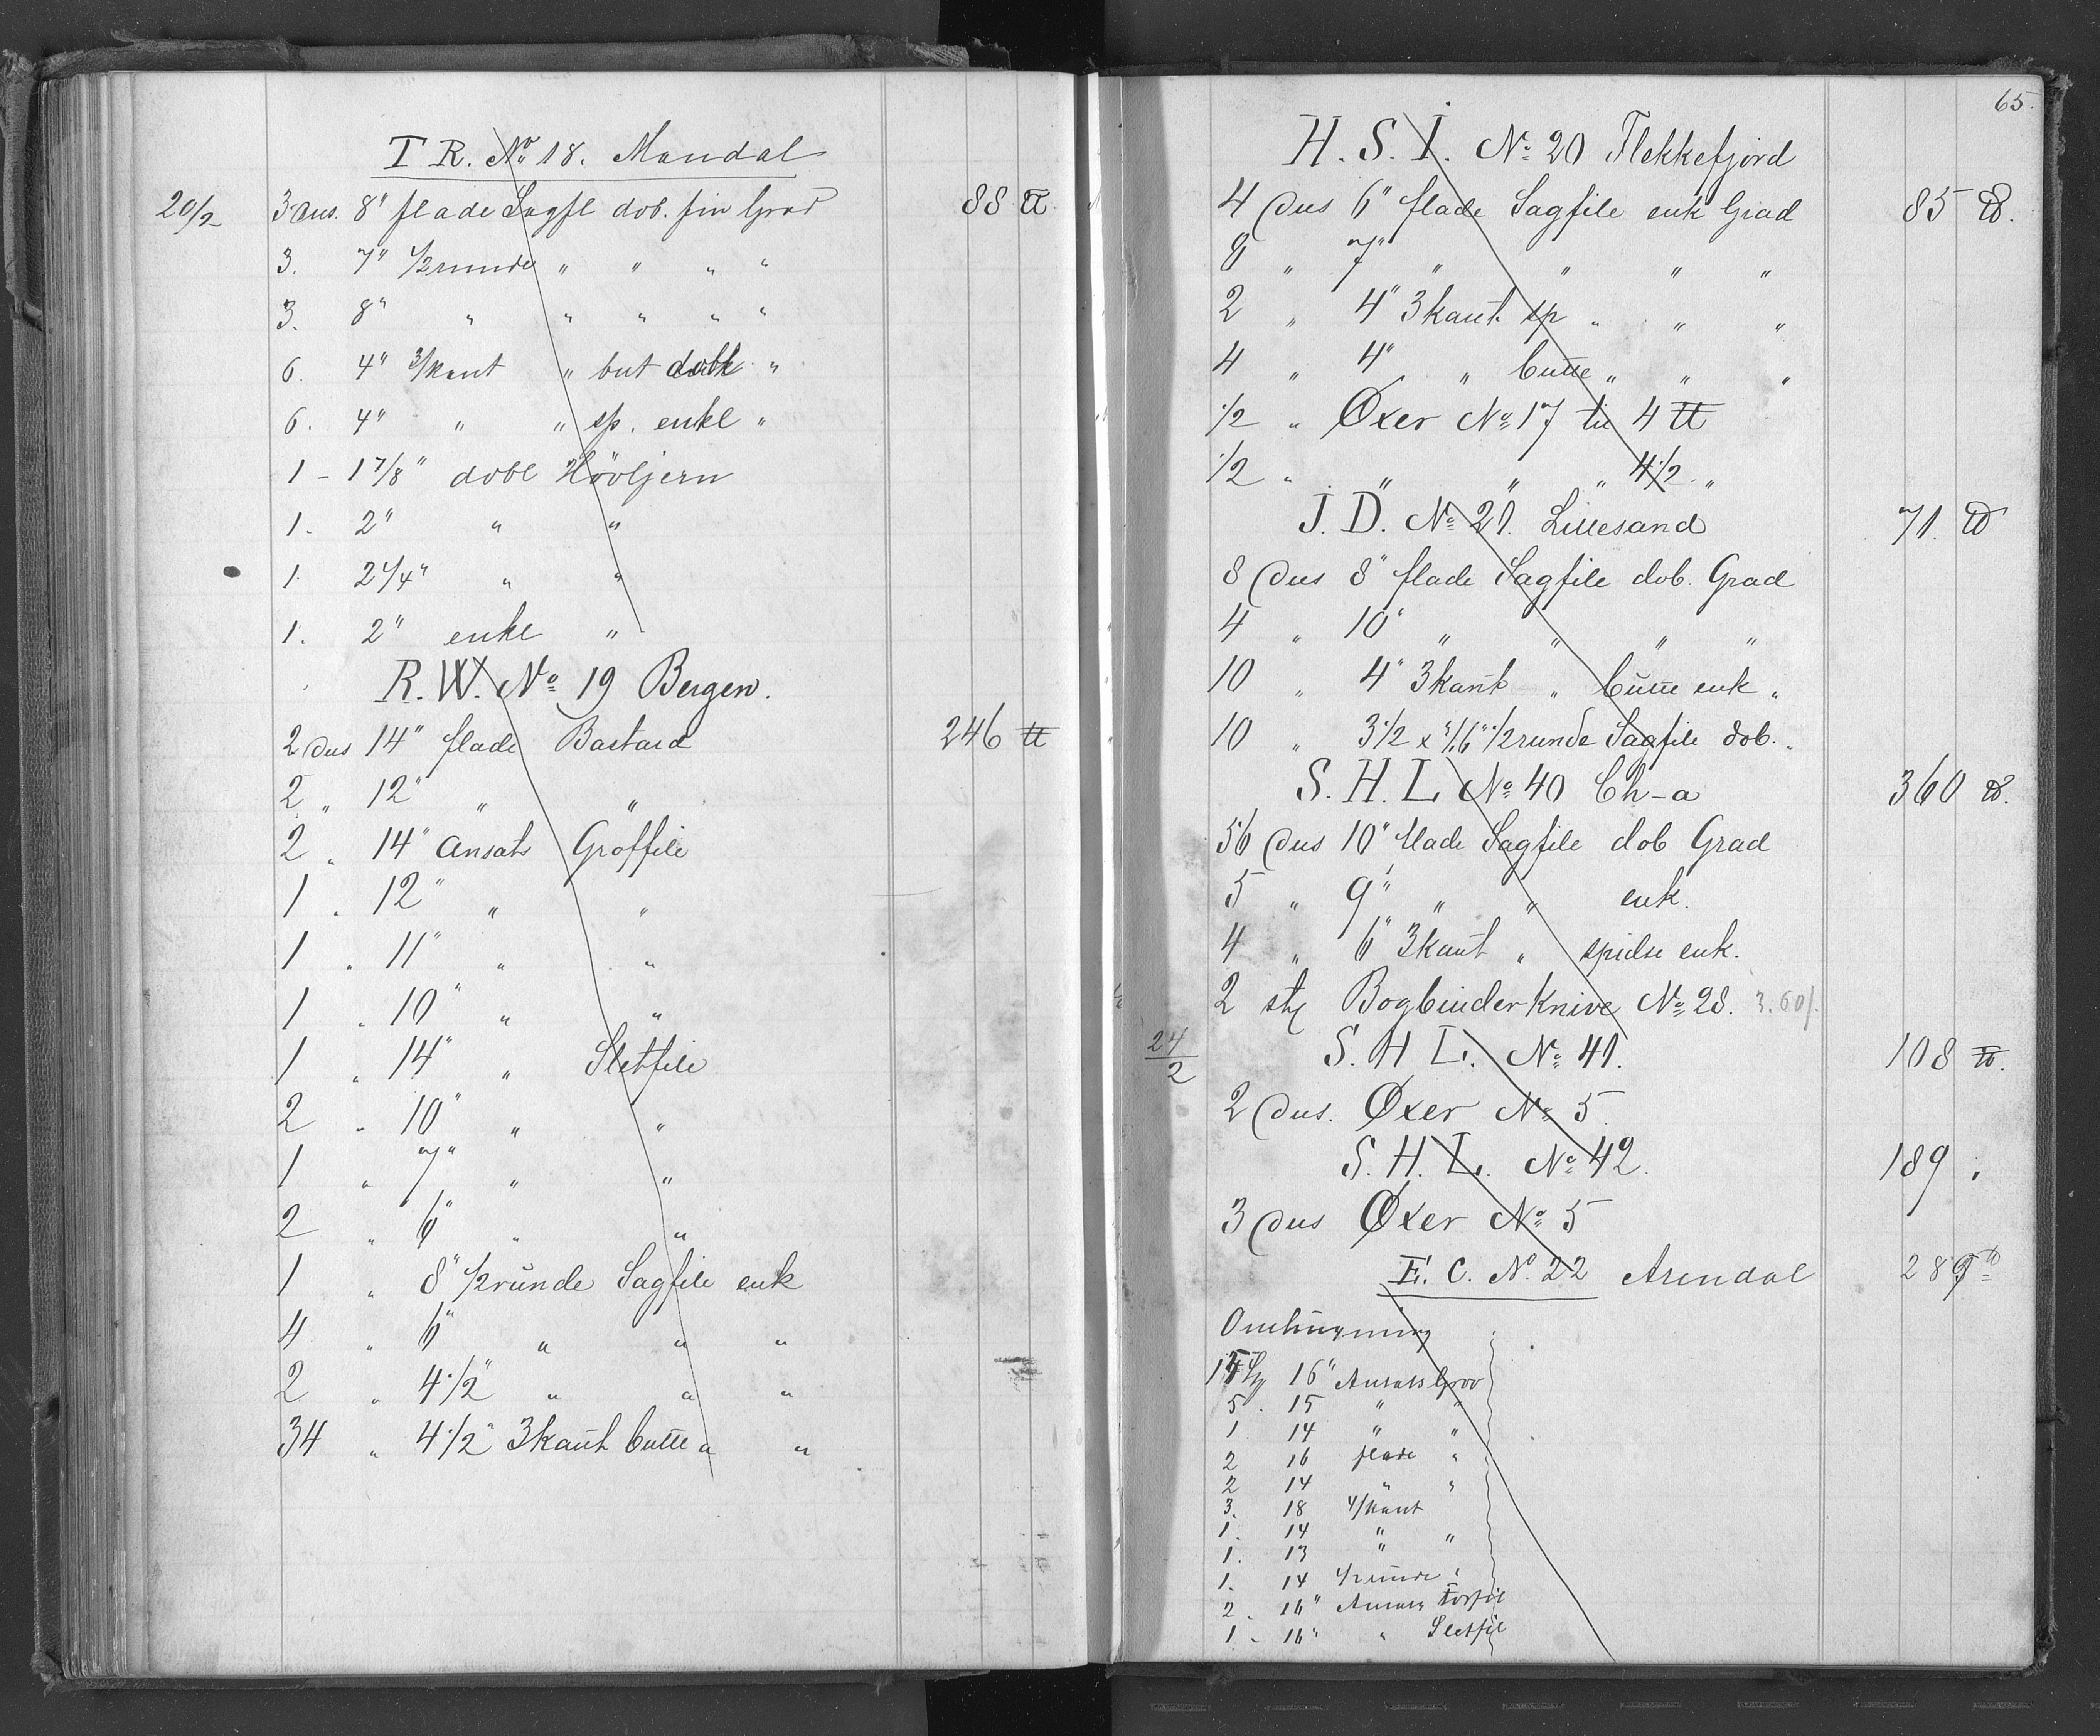 T R. No 18. Mandal
20/2 3 dus. 8" flade Sagfl dob. fin Grad 88 ℔
3. 7" 1/2runde " " " "
3. 8" " " " " "
6. 4" 3/kant " but dobb "
6. 4" " " sp. enkl "
1 - 1 7/8" dobl Høvljern
1. 2" " "
1. 2 1/4" " "
1. 2" enkl "
R. W. No 19 Bergen.
2 dus 14" flade Bastard 246 ℔
2 " 12" " "
2 " 14" Ansats Groffile
1 " 12" " "
1 " 11" " "
1 " 10" " "
1 " 14" " Sletfile
2 " 10" " "
1 " 7" " "
2 " 6" " "
1 " 8" 1/2runde Sagfile enk
4 " 6" " " "
2 " 4 1/2" " " "
34 " 4 1/2" 3kant butte " "
65.
H. S. I. No 20 Flekkefjord
4 dus 6" flade Sagfile enk Grad 85 ℔.
8 " 7" " " " "
2 " 4" 3kant sp " " "
4 " 4" " butte " " "
1/2 " Øxer No 17 til 4 ℔
1/2 " " " " 4 1/2 "
J. D. No 21. Lillesand 71. ℔
8 dus 8" flade Sagfile dob. Grad
4 " 10" " " " "
10 " 4" 3kant " butte enk "
10 " 3 1/2 x 1/16" 1/2runde Sagfile dob. "
S. H. L. No 40 Ch-a 360 ℔.
56 dus 10" flade Sagfile dob Grad
5 " 9" " " enk.
4 " 6" 3kant " spidse enk.
2 stk Bogbinder Knive No 28. 3.60/.
24/2 S. H L. No 41. 108 ℔.
2 dus. Øxer No 5.
S. H. L. No 42. 189 "
3 dus Øxer No 5
E. C. No. 22 Arendal 289 ℔
Omhugning
16" Ansats Grov
5 . 15 " "
1 14 " "
2 16 flade "
2 14 " "
3. 18 4/kant
1. 14 " "
1. 13 "
1. 14 1/2runde "
2 . 16" Ansats Forfil
1 . 16" " Sletfil